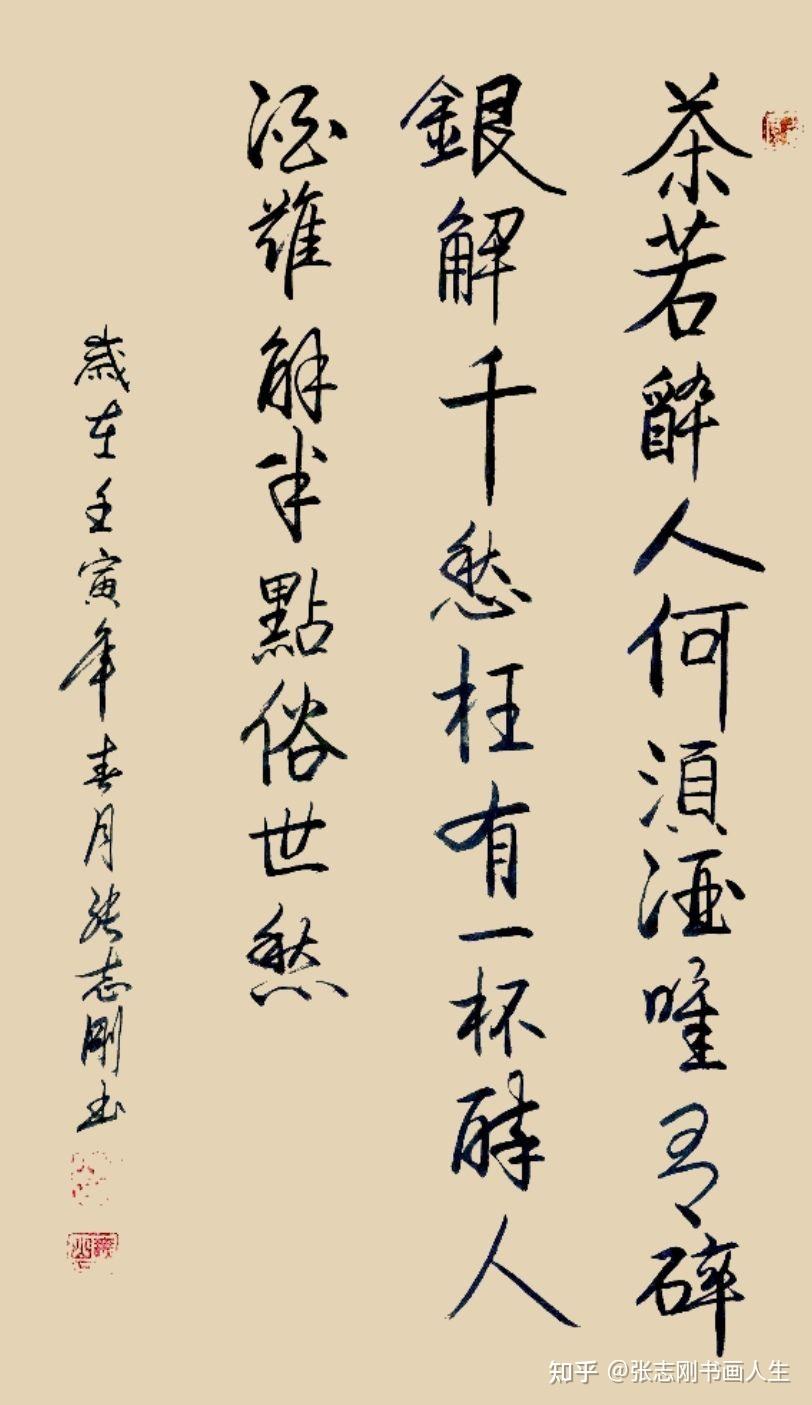 茶若醉人何須酒唯有碎
銀解千愁枉有一杯醉人
酒難解半點俗世愁
歲在壬寅年春月張志剛書
知乎 @张志刚书画人生